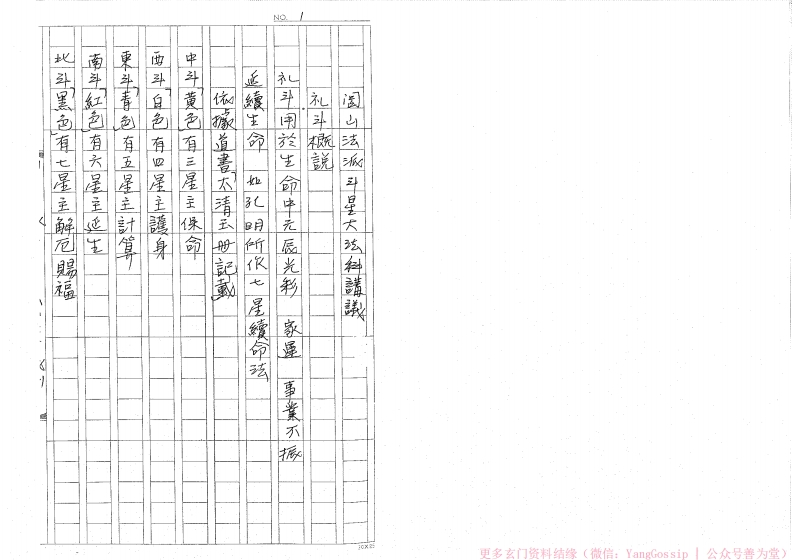 NO. 1
閭山法派斗星大法科講議
礼斗概説
礼斗用於生命中元辰光彩 家運 事業不振
延續生命 如孔明所作七星續命法
依據道書「太清玉冊記載」
中斗「黃色」有三星主保命
西斗「白色」有四星主護身
東斗「青色」有五星主計算
南斗「紅色」有六星主延生
北斗「黑色」有七星主解厄賜福
更多玄门资料结缘（微信：YangGossip | 公众号善为堂）